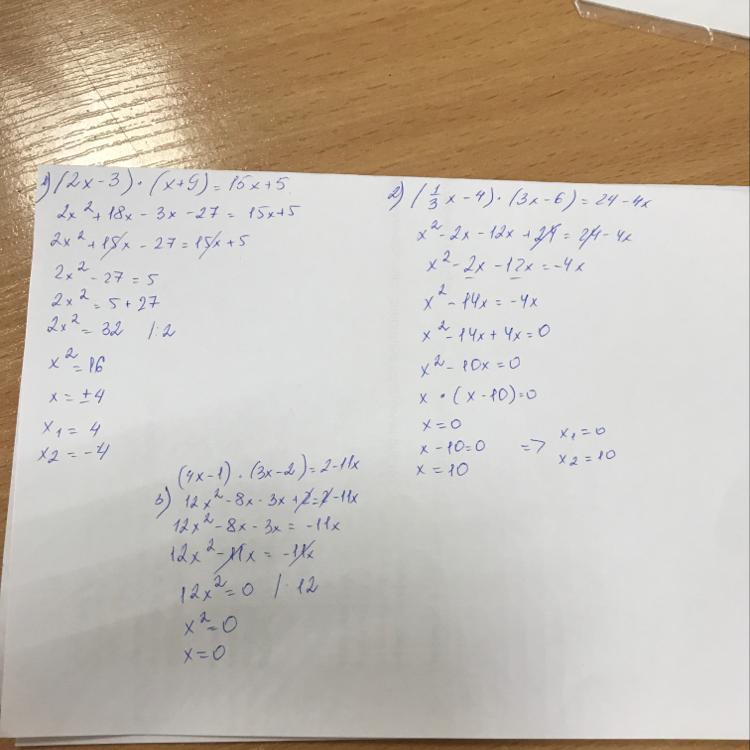 1) (2x-3)·(x+9)=15x+5
2x²+18x-3x-27=15x+5
2x²+15x-27=15x+5
2x²-27=5
2x²=5+27
2x²=32 |:2
x²=16
x=±4
x₁=4
x₂=-4
2) (1/3x-4)·(3x-6)=24-4x
x²-2x-12x+24=24-4x
x²-2x-12x=-4x
x²-14x=-4x
x²-14x+4x=0
x²-10x=0
x·(x-10)=0
x=0
x-10=0 => x₁=0
x=10 x₂=10
(4x-1)·(3x-2)=2-11x
3) 12x²-8x-3x+2=2-11x
12x²-8x-3x=-11x
12x²-11x=-11x
12x²=0 |:12
x²=0
x=0